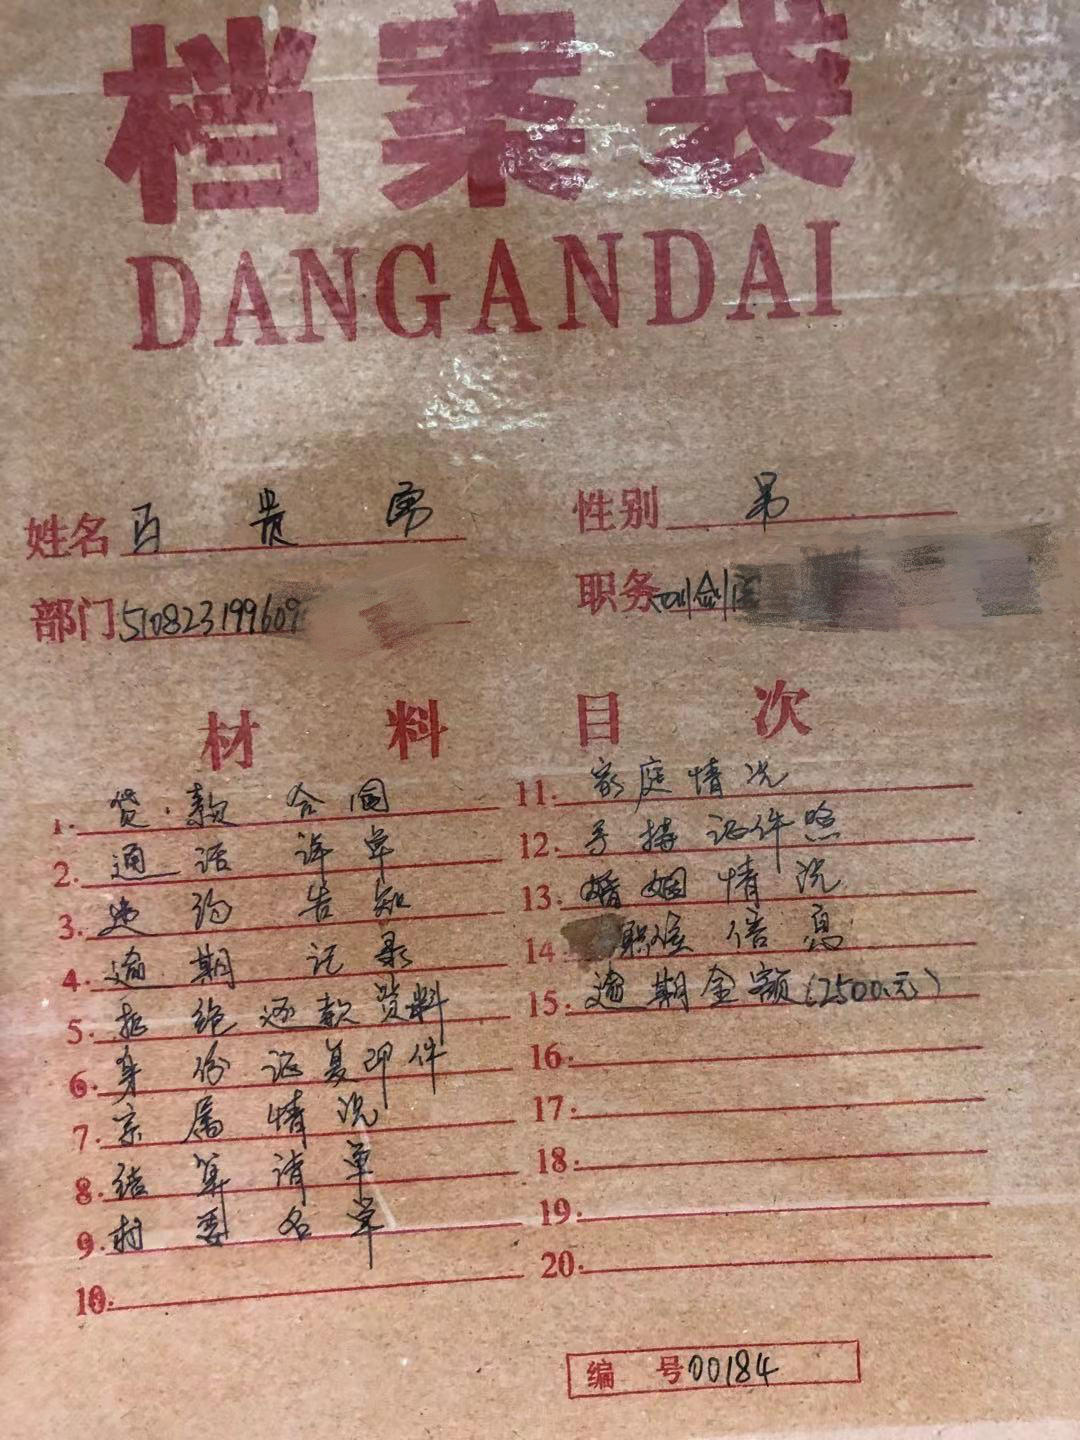 档案袋
DANGANDAI
姓名 贵勇 性别 男
部门 510823199609 职务 四川剑阁
材料目次
1. 贷款合同
2. 通话详单
3. 违约告知
4. 逾期记录
5. 拒绝还款资料
6. 身份证复印件
7. 亲属情况
8. 结算清单
9. 村委名单
10.
11. 家庭情况
12. 手持证件照
13. 婚姻情况
14 信息
15. 逾期金额(12500.元)
16.
17.
18.
19.
20.
编号 00184